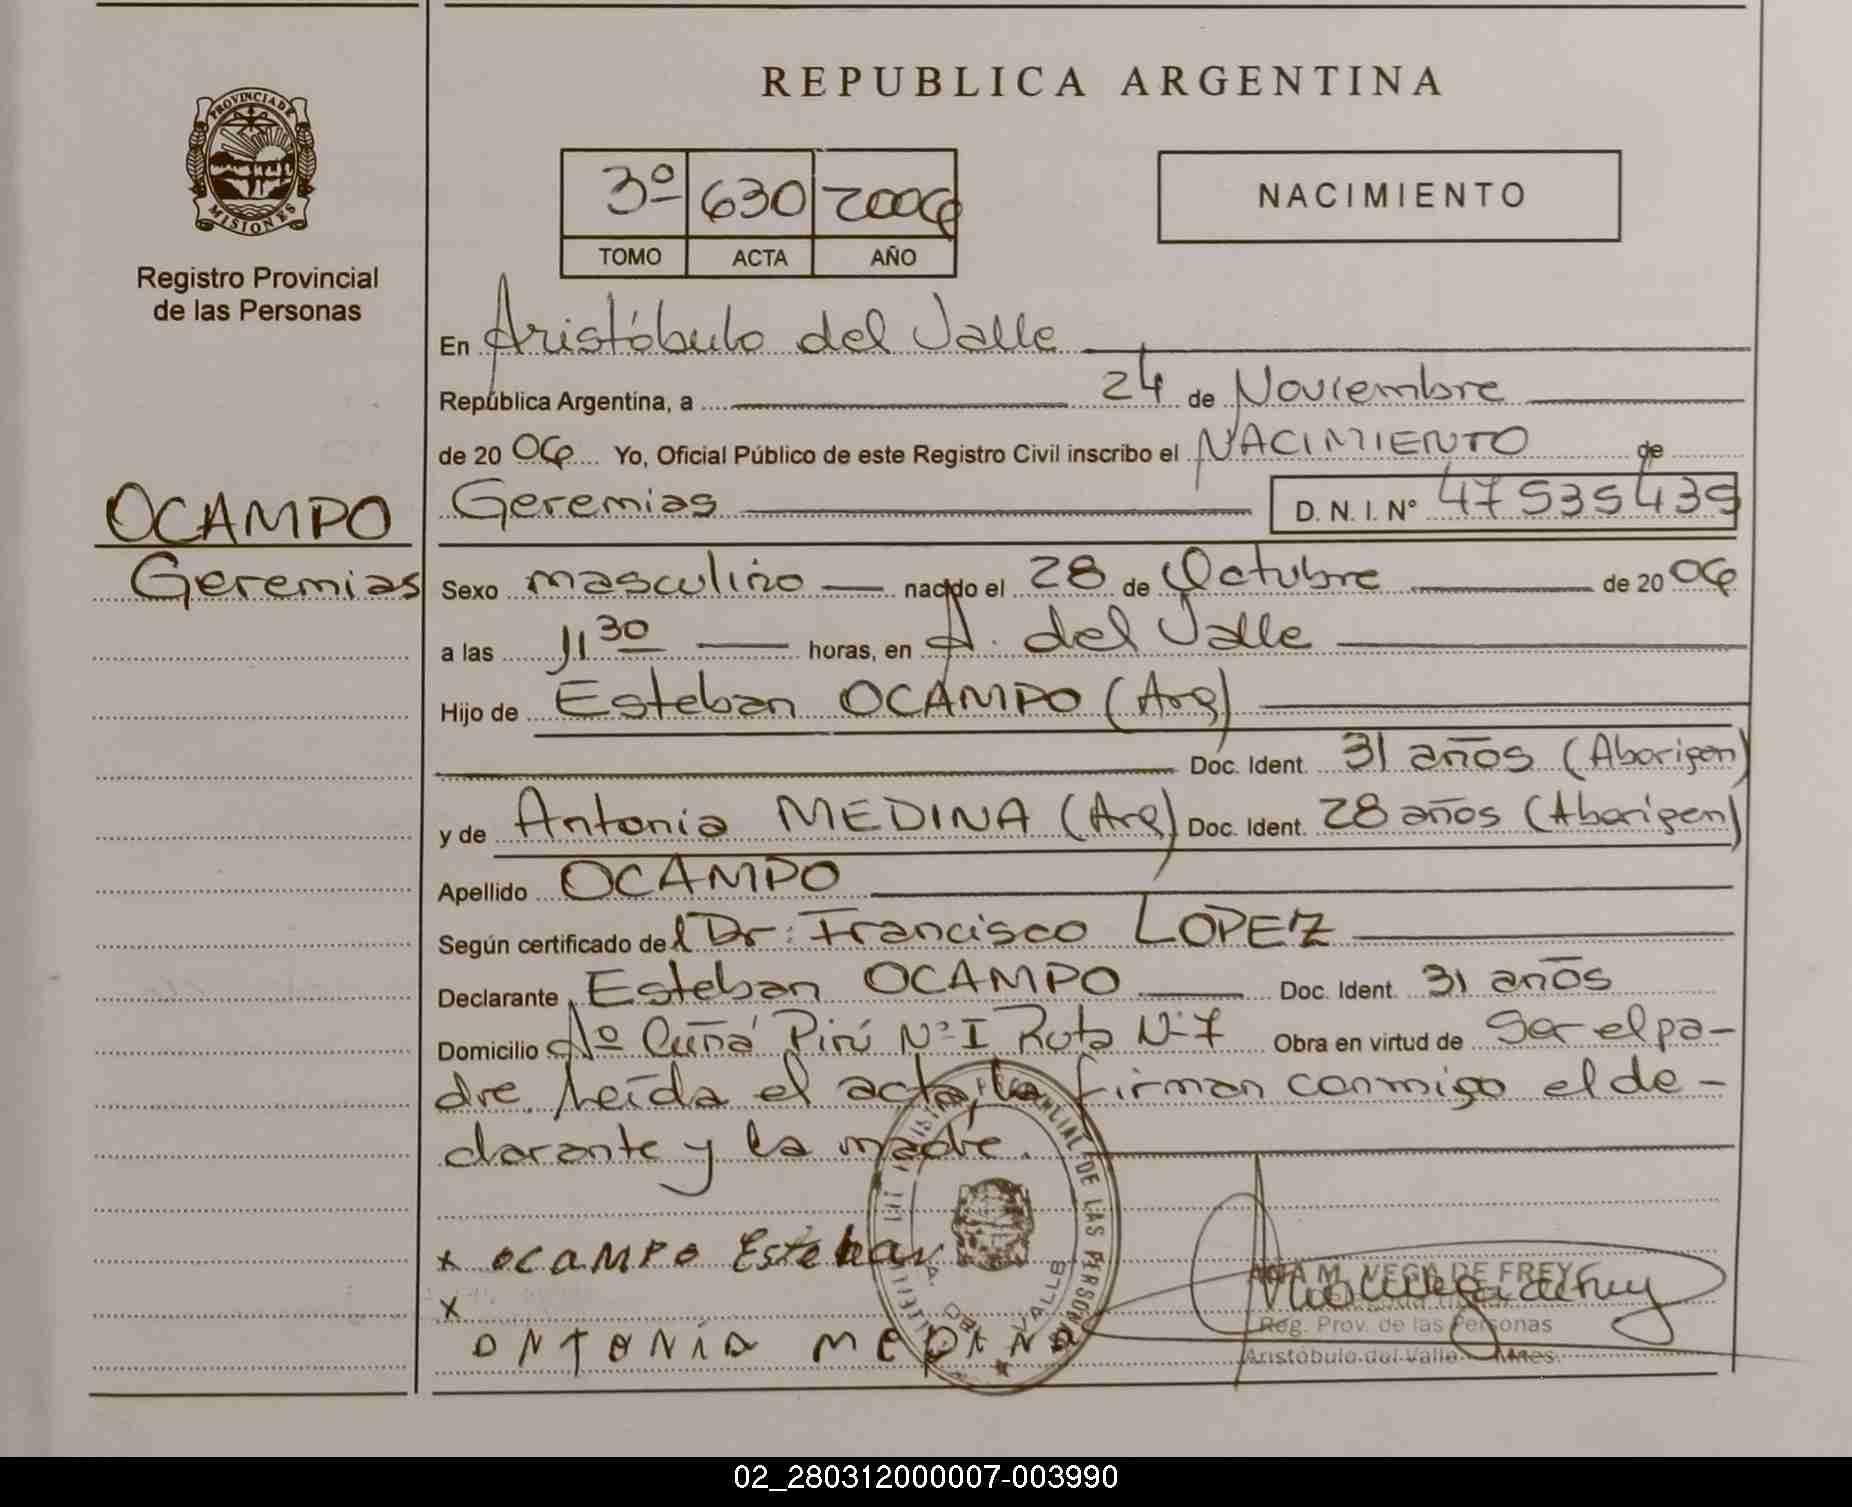 REPUBLICA ARGENTINA
PROVINCIA DE
MISIONES
Registro Provincial
de las Personas
3º 630 2006
TOMO ACTA AÑO
NACIMIENTO
En Aristóbulo del Valle
República Argentina, a 24 de Noviembre
de 20 06 Yo, Oficial Público de este Registro Civil inscribo el NACIMIENTO de
OCAMPO
Geremias
Geremias D. N. I. Nº 47535439
Sexo masculino nacido el 28 de Octubre de 20 06
a las 11 30 horas, en A. del Valle
Hijo de Esteban OCAMPO (Arg)
Doc. Ident. 31 años (Aborigen)
y de Antonia MEDINA (Arg) Doc. Ident. 28 años (Aborigen)
Apellido OCAMPO
Según certificado del Dr: Francisco LOPEZ
Declarante Esteban OCAMPO Doc. Ident. 31 años
Domicilio Aº Cuñá Pirú Nº I Ruta Nº 7 Obra en virtud de Ser el pa-
dre. Leída el acta, la firman conmigo el de-
clarante y la madre.
x OCAMPO Esteban
x
ANTONIA MEDINA
DE LAS PERSONAS
A. DEL VALLE
ANA M. VEGA DE FREY
Reg. Prov. de las Personas
Aristóbulo del Valle - Mnes.
02_280312000007-003990